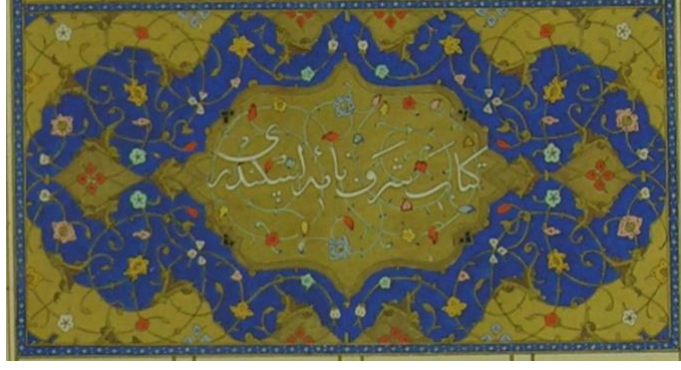 کتاب شرف نامه اسکندری